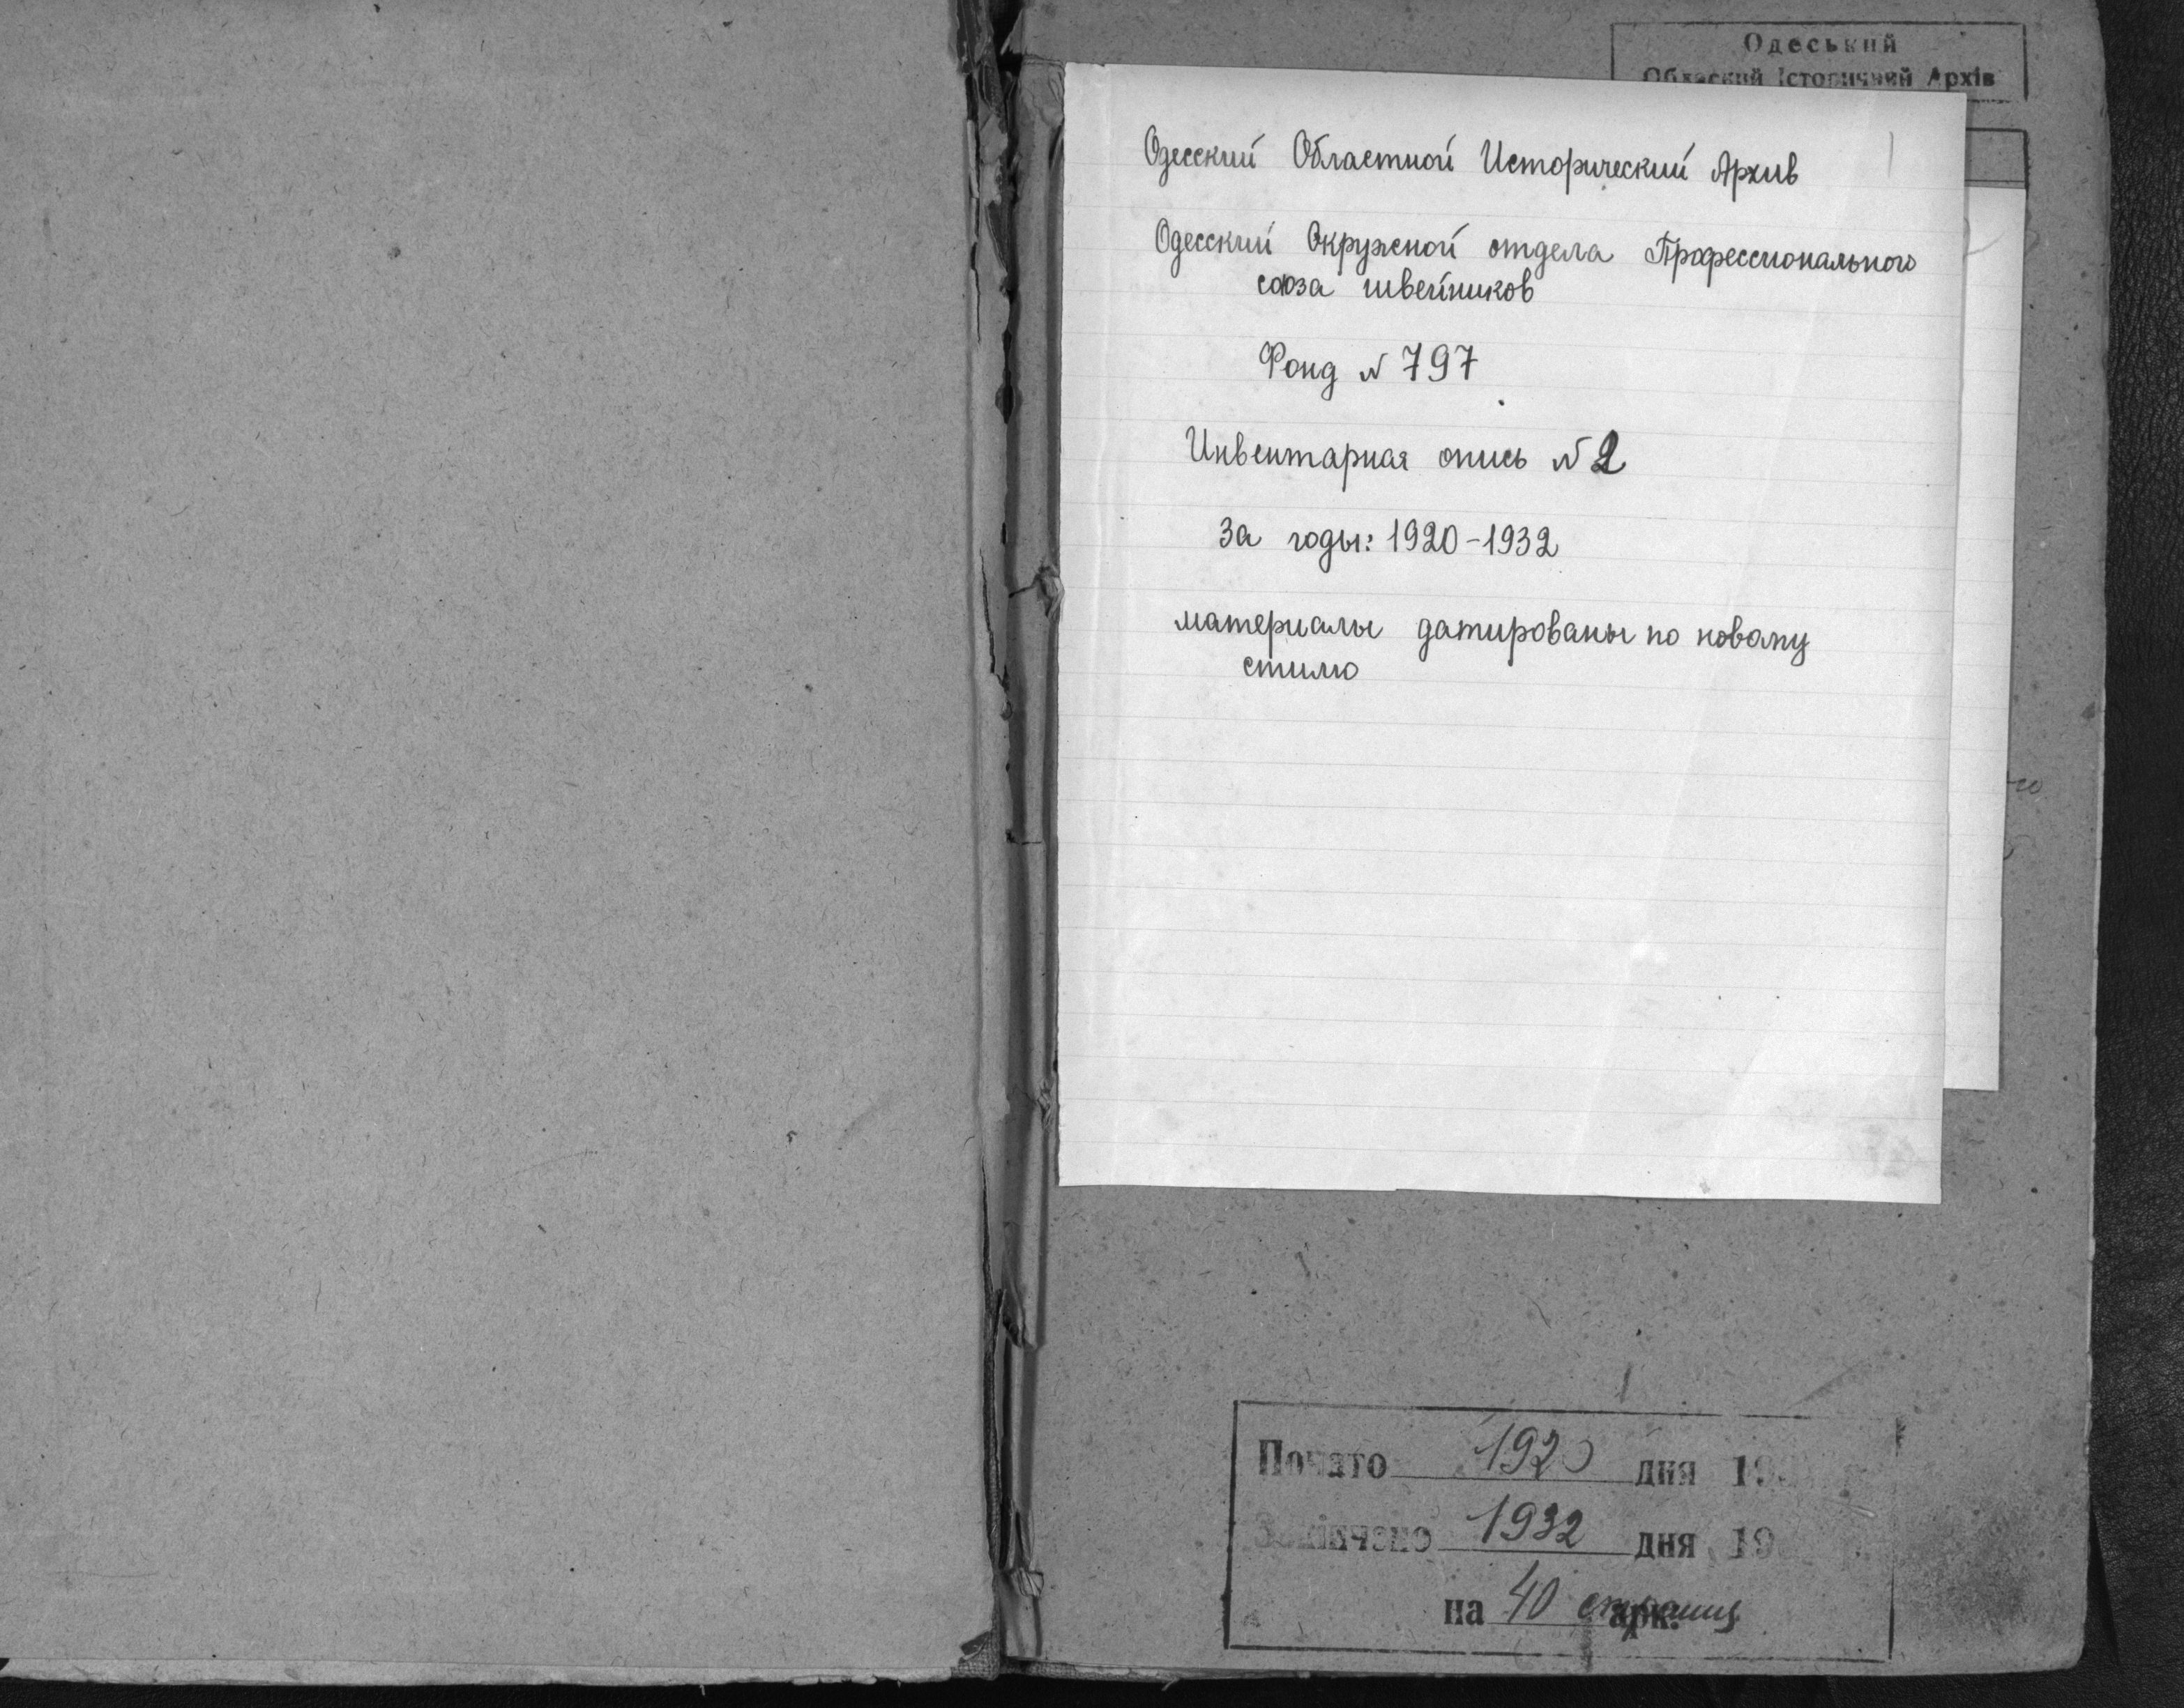 Одеський
Обласний Історичний Архів
1
Одесский Областной Исторический Архив
Одесский Окружной отдела Профессионального
союза швейников
Фонд № 797
Инвентарная опись № 2
За годы: 1920-1932
материалы датированы по новому
стилю
Почато 1920 дня 19
Закінчено 1932 дня 19
на 40 страниц арк.